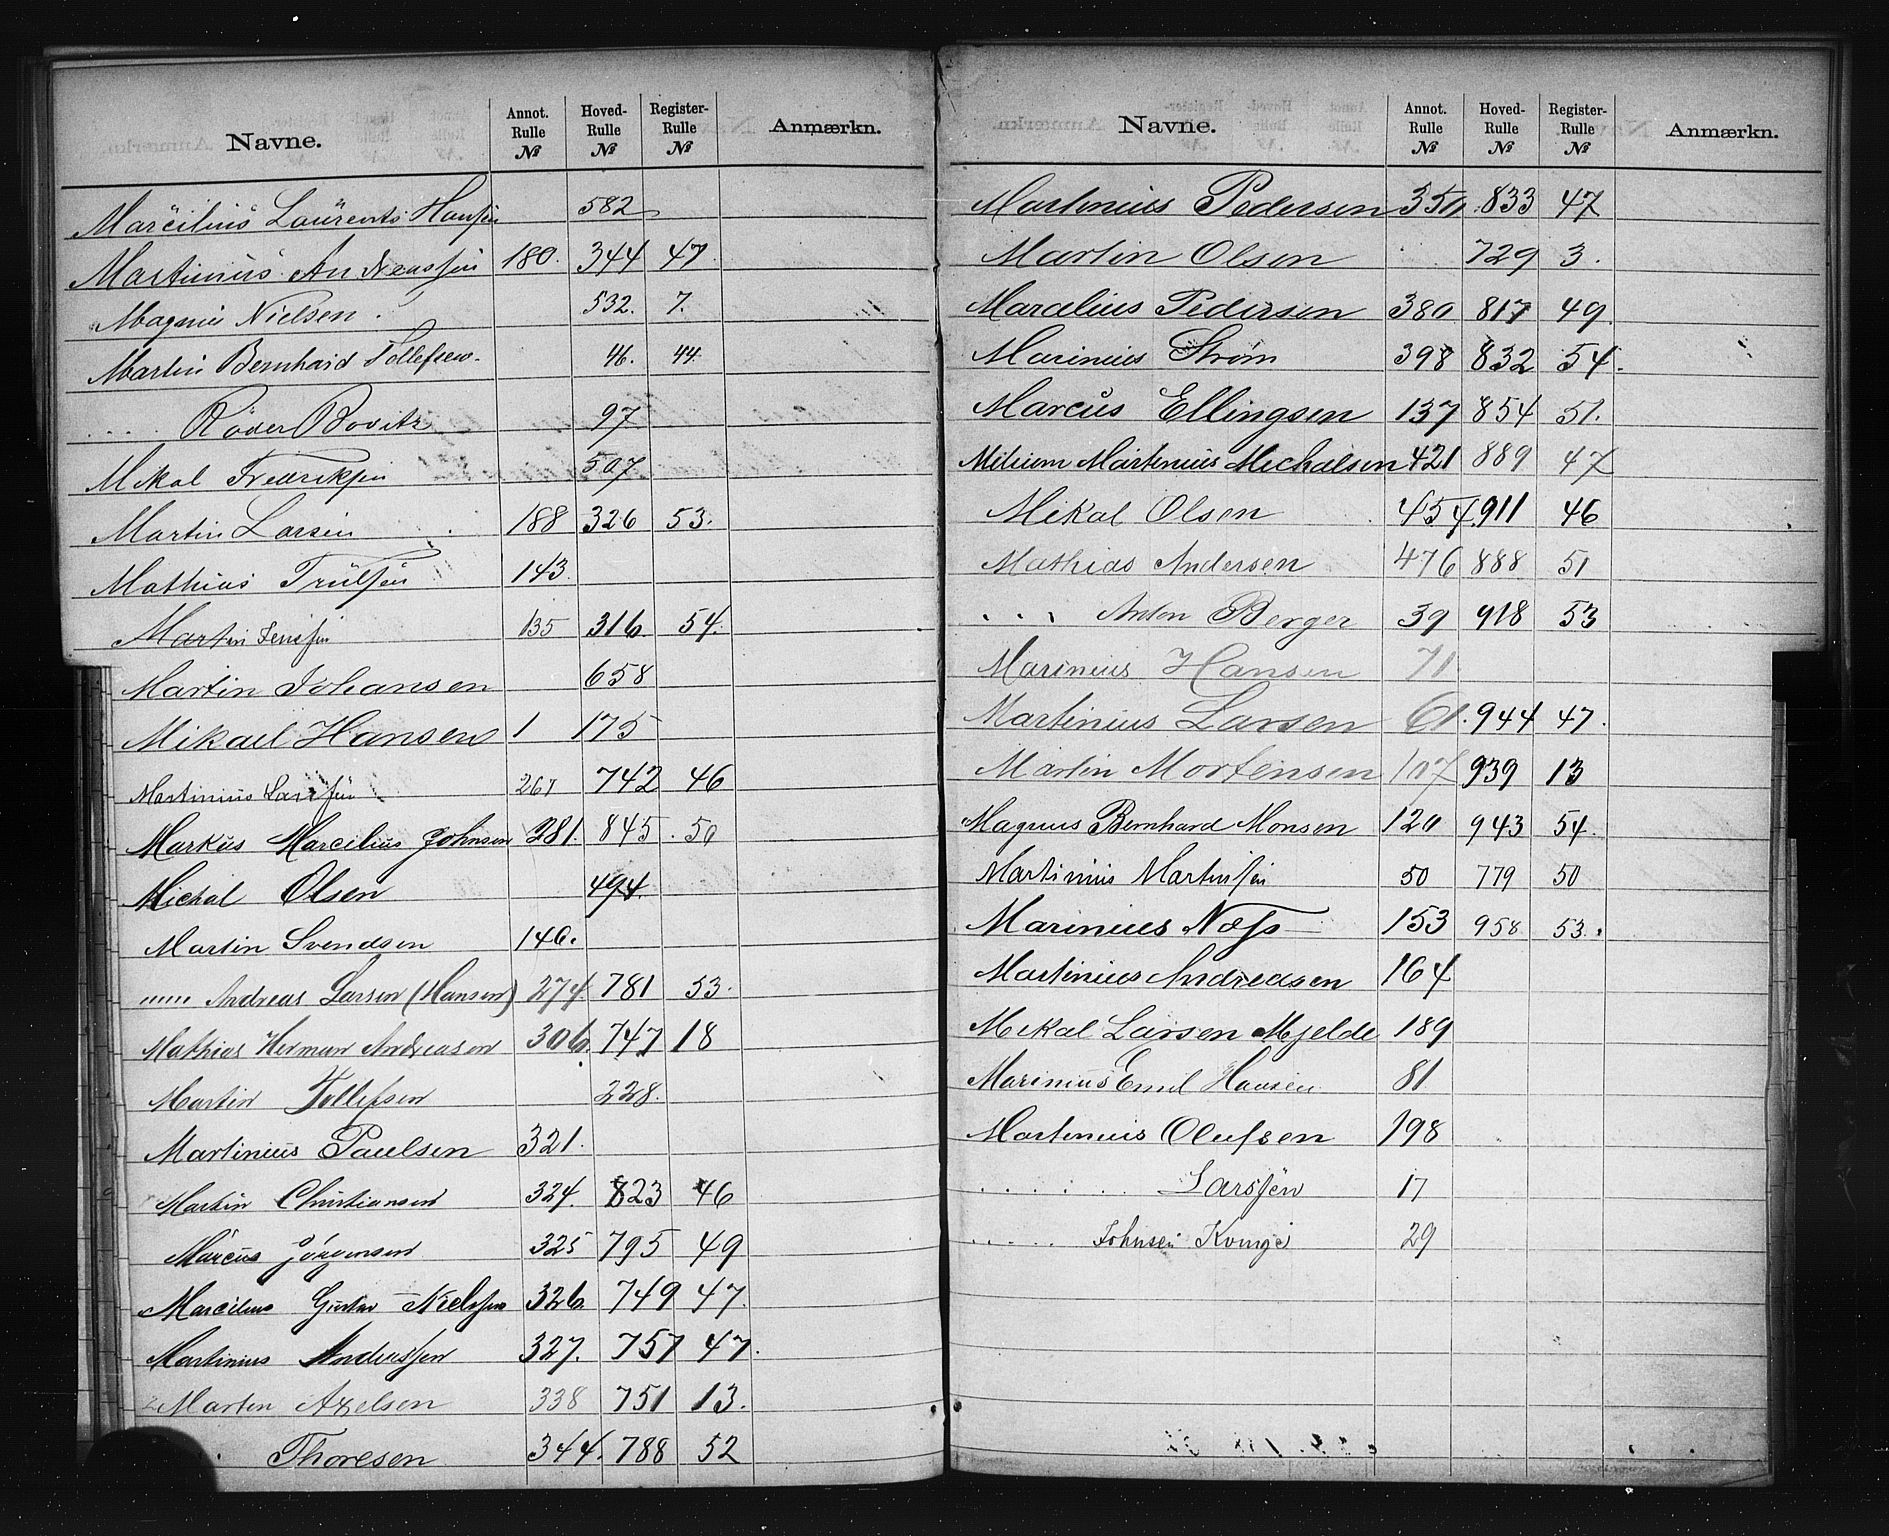 Navne. Annot. Rulle № Hoved-Rulle № Register-Rulle № Anmærkn.
Marcilius Laurents Hansen 582
Martinius Andreassen 180. 344 47.
Magnus Nielsen. 532. 7.
Martin Bernhard Tollefsen. 46. 44.
" Röder Bovitz 97
Mikal Fredriksen 507
Martin Larsen 188 326 53.
Mathias Trulsen 143.
Martin Jensen 135 316 54.
Martin Johansen 658
Mikael Hansen 1 175
Martinius Larsen 267 742 46
Markus Marcilius Johnsen 281. 845. 50
Michal Olsen 494.
Martin Svendsen 146.
""" Andreas Larsen (Hansen) 274. 781 53.
Mathias Herman Andreasen 306. 747 18
Martin Tollefsen 228.
Martinius Paulsen 321.
Martin Christiansen 324. 823 46
Marcus Jörgensen 325 795 49
Marcilius Gustav Nielssen 326. 749 47.
Martinius Andreassen 327. 757 47.
Marten Axelsen 338 751 13.
" Thoresen 344. 788 52
Navne. Annot. Rulle № Hoved-Rulle № Register-Rulle № Anmærkn.
Martinius Pedersen 350. 833 47
Martin Olsen 729 3.
Marcelius Pedersen 380 817 49.
Marinius Strøm 398 832 54.
Marcus Ellingsen 137 854 51.
Martinius Michalsen 421 889 47
Mikal Olsen 454. 911 46
Mathias Andersen 476 888 51
" Anton Berger 39 918 53
Marinius Hansen 71
Martinius Larsen 61. 944 47.
Martin Mortensen 107 939 13
Magnus Bernhard Monsen 120 943 54.
Martinius Martinsen 50 779 50
Marinius Næss 153 958 53.
Martinius Andreasen 164
Mekal Larsen Mjelde 189
Marinius Emil Hansen 81
Martinius Olufsen 198
. . . . . . Larssen 17
. . . . . Johnsen Kvinge 29